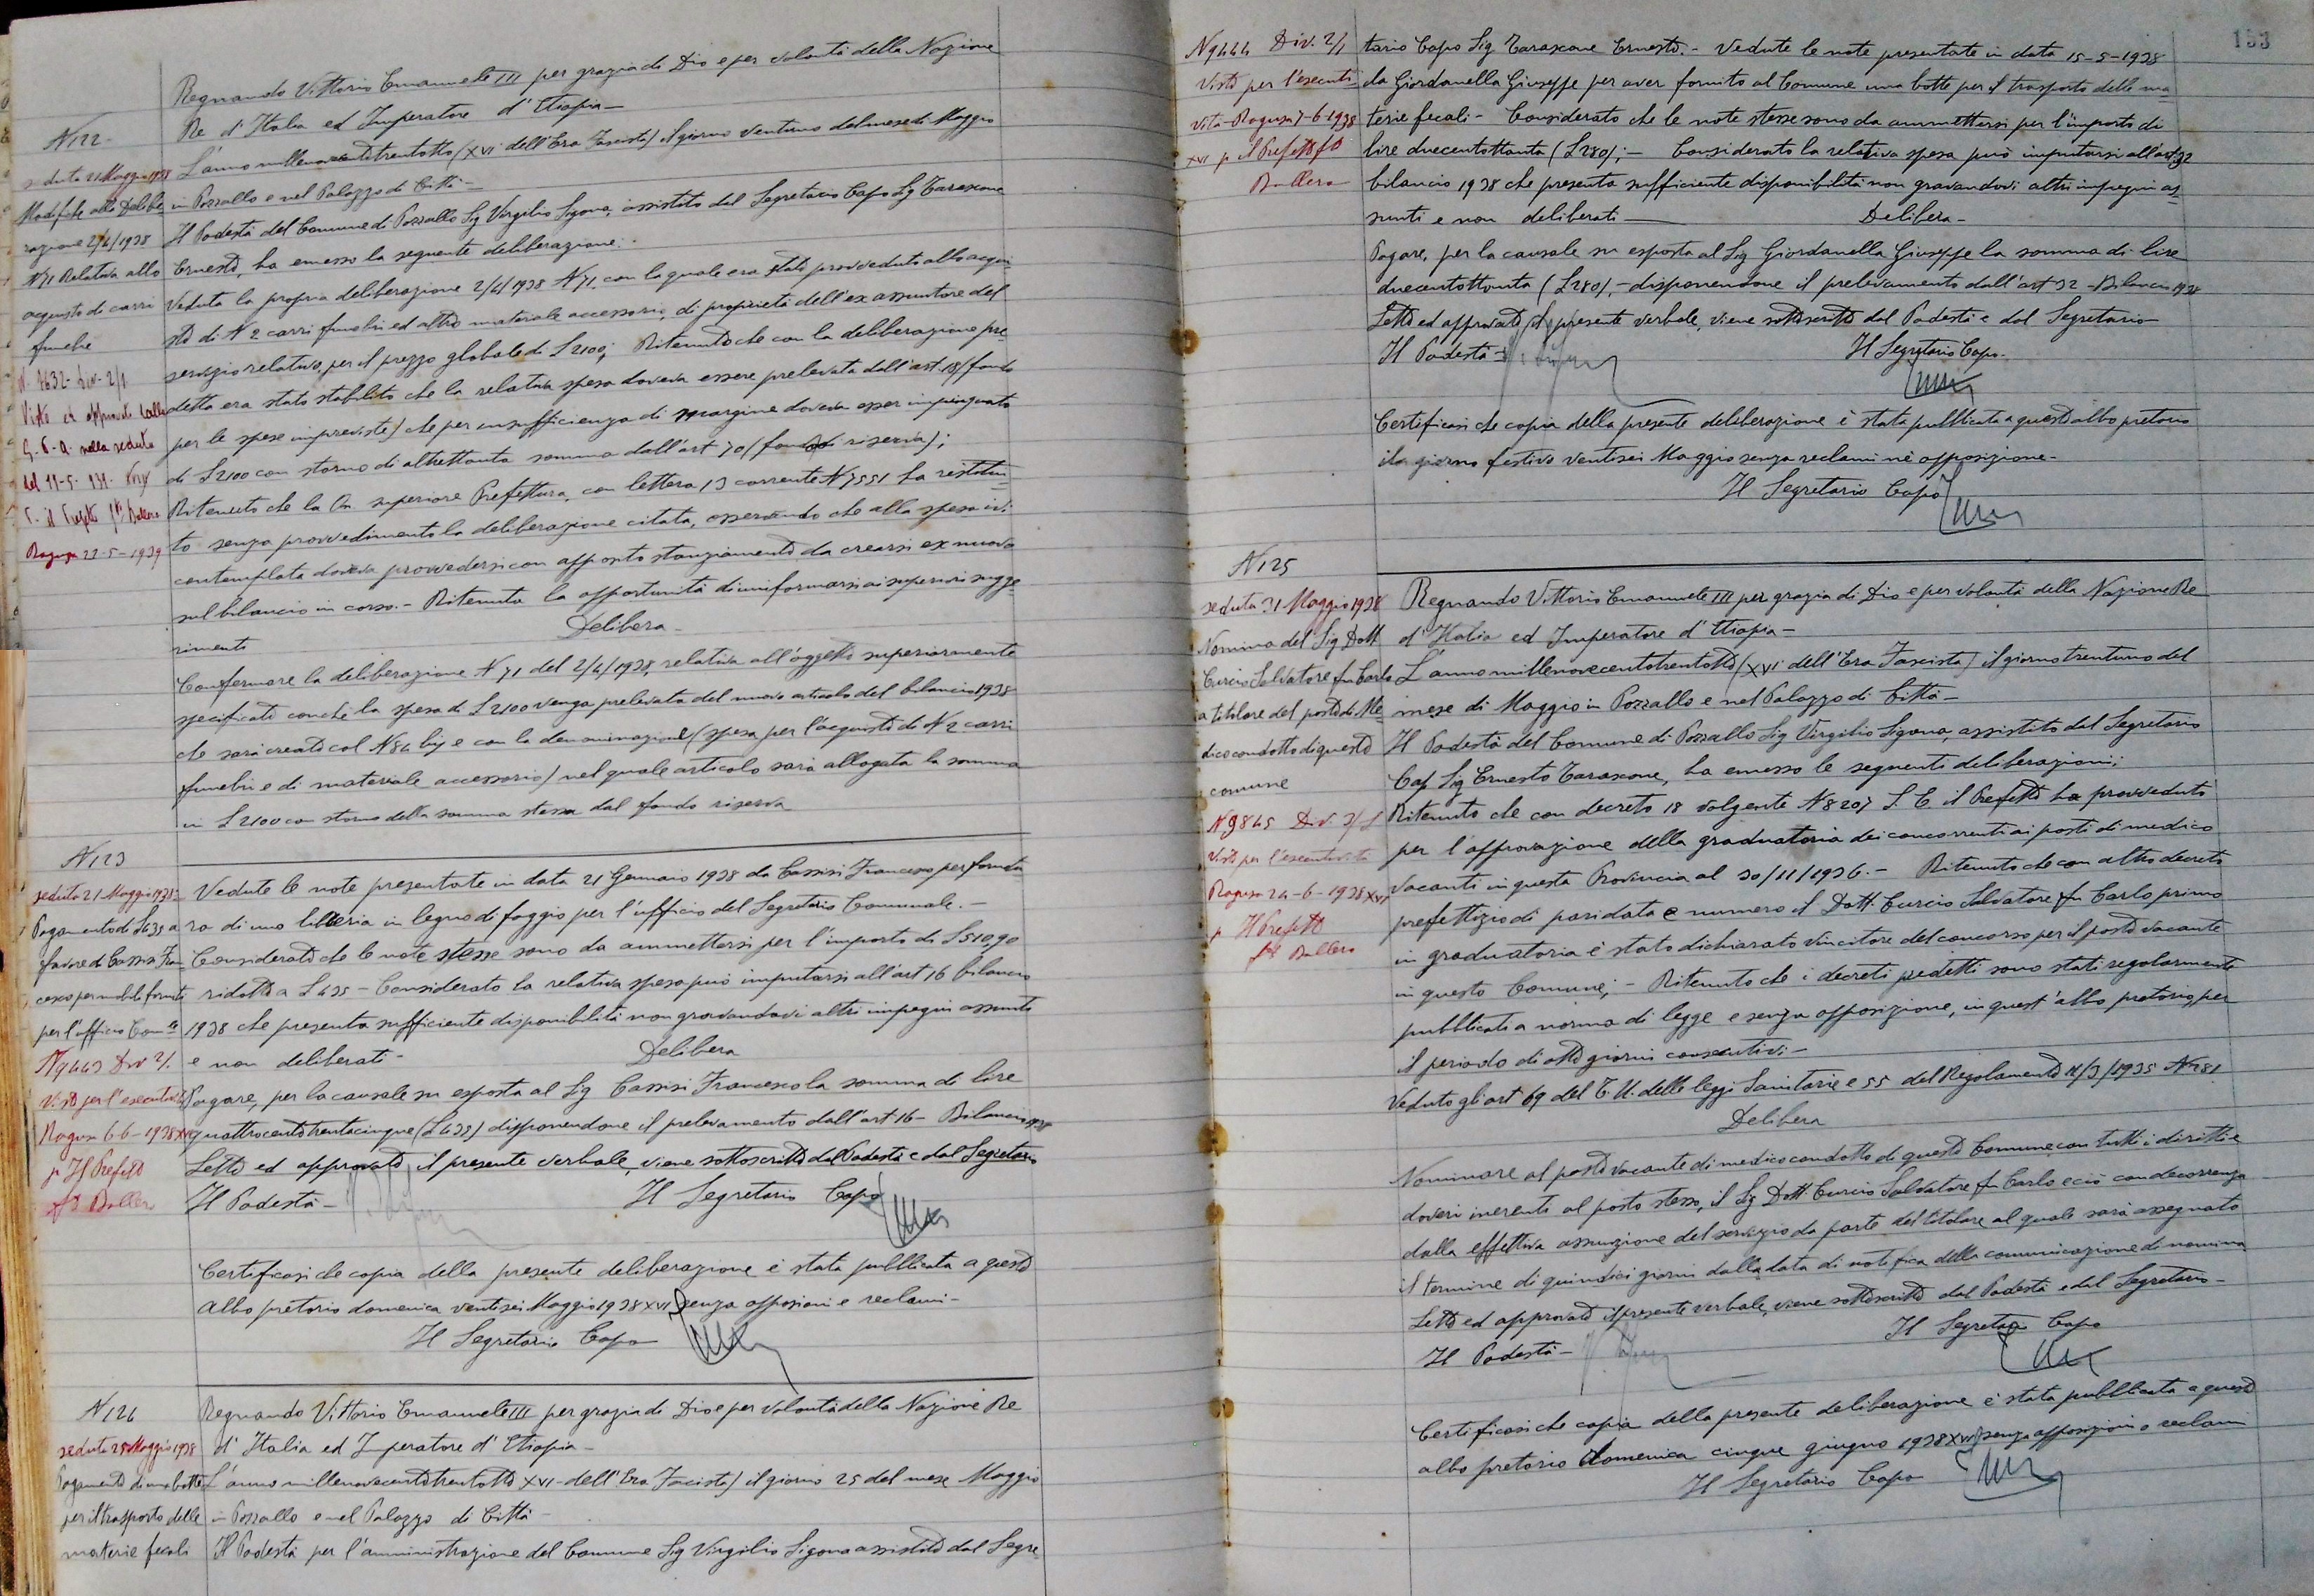 Regnando Vittorio Emanuele III per grazia di Dio e per volontà della Nazione
Re d'Italia ed Imperatore d'Etiopia -
L'anno millenovecentotrentotto (XVI dell'Era Fascista) il giorno ventuno del mese di Maggio
in Pozzallo e nel Palazzo di Città -
Il Podestà del Comune di Pozzallo Sig Virgilio Sigona, assistito dal Segretario Capo Sig Tarascone
Ernesto, ha emesso la seguente deliberazione:
Veduta la propria deliberazione 2/4/1938 N 71 con la quale era stato provveduto allo acqui-
sto di N 2 carri funebri ed altro materiale accessorio, di proprietà dell'ex assuntore del
servizio relativo, per il prezzo globale di L 2100; Ritenuto che con la deliberazione pre-
detta era stato stabilito che la relativa spesa doveva essere prelevata dall'art. 18 (fondo
per le spese impreviste) che per insufficienza di margine doveva esser impinguato
di L 2100 con storno di altrettanta somma dall'art 70 (fondo di riserva);
Ritenuto che la On. superiore Prefettura, con lettera 13 corrente N 7551 ha restitui-
to senza provvedimento la deliberazione citata, osservando che alla spesa ivi
contemplata doveva provvedersi con apposito stanziamento da crearsi ex nuovo
sul bilancio in corso. - Ritenuta la opportunità di uniformarsi ai superiori sugge-
rimenti
Delibera -
Confermare la deliberazione N 71 del 2/4/1938, relativa all'oggetto superiormente
specificato con chè la spesa di L 2100 venga prelevata dal nuovo articolo del bilancio 1938
che sarà creato col N 84 bis e con la denominazione (spesa per l'acquisto di N 2 carri
funebri e di materiale accessorio) nel quale articolo sarà allogata la somma
in L 2100 con storno della somma stessa dal fondo riserva
N 122 -
seduta 21 Maggio 1938
Modifiche alla Delibe
razione 2/4/1938
N 71 Relativa allo
acquisto di carri
funebri
N. 7632. Div. 2/1
Visto ed approvato dalla
G. P. A. nella seduta
del 11-5-
p. il Prefetto
Ragusa 22-5-1939
N 123
seduta 21 Maggio 1938
Pagamento di L 435 a
favore di Cassisi Fran
cesco per mobile fornito
per l'ufficio Com.le
N 9443 Div 2/1
Visto per l'esecutività
Ragusa 6-6-1938 XVI
p Il Prefetto
fto Ballero
Vedute le note presentate in data 21 Gennaio 1938 da Cassisi Francesco per fornitu
ra di una libreria in legno di faggio per l'ufficio del Segretario Comunale. -
Considerato che le note stesse sono da ammettersi per l'importo di L 510,90
ridotto a L 435 - Considerato la relativa spesa può imputarsi all'art 16 bilancio
1938 che presenta sufficiente disponibilità non gravandovi altri impegni assunti
e non deliberati - Delibera
Pagare, per la causale su esposta al Sig Cassisi Francesco la somma di lire
quattrocentotrentacinque (L 435) disponendone il prelevamento dall'art 16 - Bilancio 1938
Letto ed approvato il presente verbale, viene sottoscritto dal Podestà e dal Segretario
Il Podestà - Il Segretario Capo
Certificasi che copia della presente deliberazione è stata pubblicata a questo
albo pretorio domenica ventisei Maggio 1938 XVI senza opposizioni e reclami -
Il Segretario Capo
N 124
seduta 25 Maggio 1938
Pagamento di una botte
per il trasporto delle
materie fecali
Regnando Vittorio Emanuele III per grazia di Dio e per volontà della Nazione Re
d'Italia ed Imperatore d'Etiopia -
L'anno millenovecentotrentotto XVI - dell'Era Fascista) il giorno 25 del mese Maggio
in Pozzallo e nel Palazzo di Città -
Il Podestà per l'amministrazione del Comune Sig Virgilio Sigona assistito dal Segre-
133
N 9444 Div. 2/1
Visto per l'esecuti
vità - Ragusa 7-6-1938
XVI p il Prefetto fto
Ballero
tario Capo Sig Tarascone Ernesto. - Vedute le note presentate in data 15-5-1938
da Giordanella Giuseppe per aver fornito al Comune una botte per il trasporto delle ma-
terie fecali - Considerato che le note stesse sono da ammettersi per l'importo di
lire duecentottanta (L 280); - Considerato la relativa spesa può imputarsi all'art 32
bilancio 1938 che presenta sufficiente disponibilità non gravandovi altri impegni as-
sunti e non deliberati - Delibera -
Pagare, per la causale su esposta al Sig Giordanella Giuseppe la somma di lire
duecentottanta (L 280), - disponendone il prelevamento dall'art 32 - Bilancio 1938
Letto ed approvato il presente verbale, viene sottoscritto dal Podestà e dal Segretario
Il Podestà - Il Segretario Capo.
Certificasi che copia della presente deliberazione è stata pubblicata a questo albo pretorio
il giorno festivo ventisei Maggio senza reclami nè opposizione -
Il Segretario Capo
N 125
seduta 31 Maggio 1938
Nomina del Sig Dott
Curcio Salvatore fu Carlo
a titolare del posto di Me-
dico condotto di questo
comune
N 9845 Div. 3/1
Visto per l'esecutività
Ragusa 24-6-1938 XVI
p Il Prefetto
fto Ballero
Regnando Vittorio Emanuele III per grazia di Dio e per volontà della Nazione Re
d'Italia ed Imperatore d'Etiopia -
L'anno millenovecentotrentotto (XVI dell'Era Fascista) il giorno trentuno del
mese di Maggio in Pozzallo e nel Palazzo di Città -
Il Podestà del Comune di Pozzallo Sig Virgilio Sigona, assistito dal Segretario
Capo Sig Ernesto Tarascone, ha emesso le seguenti deliberazioni:
Ritenuto che con decreto 18 volgente N 8207 S. C. il Prefetto ha provveduto
per l'approvazione della graduatoria dei concorrenti ai posti di medico
vacanti in questa Provincia al 30/11/1936. - Ritenuto che con altro decreto
prefettizio di pari data e numero il Dott. Curcio Salvatore fu Carlo primo
in graduatoria è stato dichiarato vincitore del concorso per il posto vacante
in questo Comune; - Ritenuto che i decreti predetti sono stati regolarmente
pubblicati a norma di legge e senza opposizione, in quest'albo pretorio, per
il periodo di otto giorni consecutivi -
Veduto gli art 69 del T. U. delle leggi Sanitarie e 55 del Regolamento 11/3/1935 N 281
Delibera
Nominare al posto vacante di medico condotto di questo Comune con tutti i diritti e
doveri inerenti al posto stesso, il Sig Dott. Curcio Salvatore fu Carlo e ciò con decorrenza
dalla effettiva assunzione del servizio da parte del titolare al quale sarà assegnato
il termine di quindici giorni dalla data di notifica della comunicazione di nomina
Letto ed approvato il presente verbale, viene sottoscritto dal Podestà e dal Segretario -
Il Podestà - Il Segretario Capo
Certificasi che copia della presente deliberazione è stata pubblicata a questo
albo pretorio domenica cinque giugno 1938 XVI senza opposizioni o reclami
Il Segretario Capo